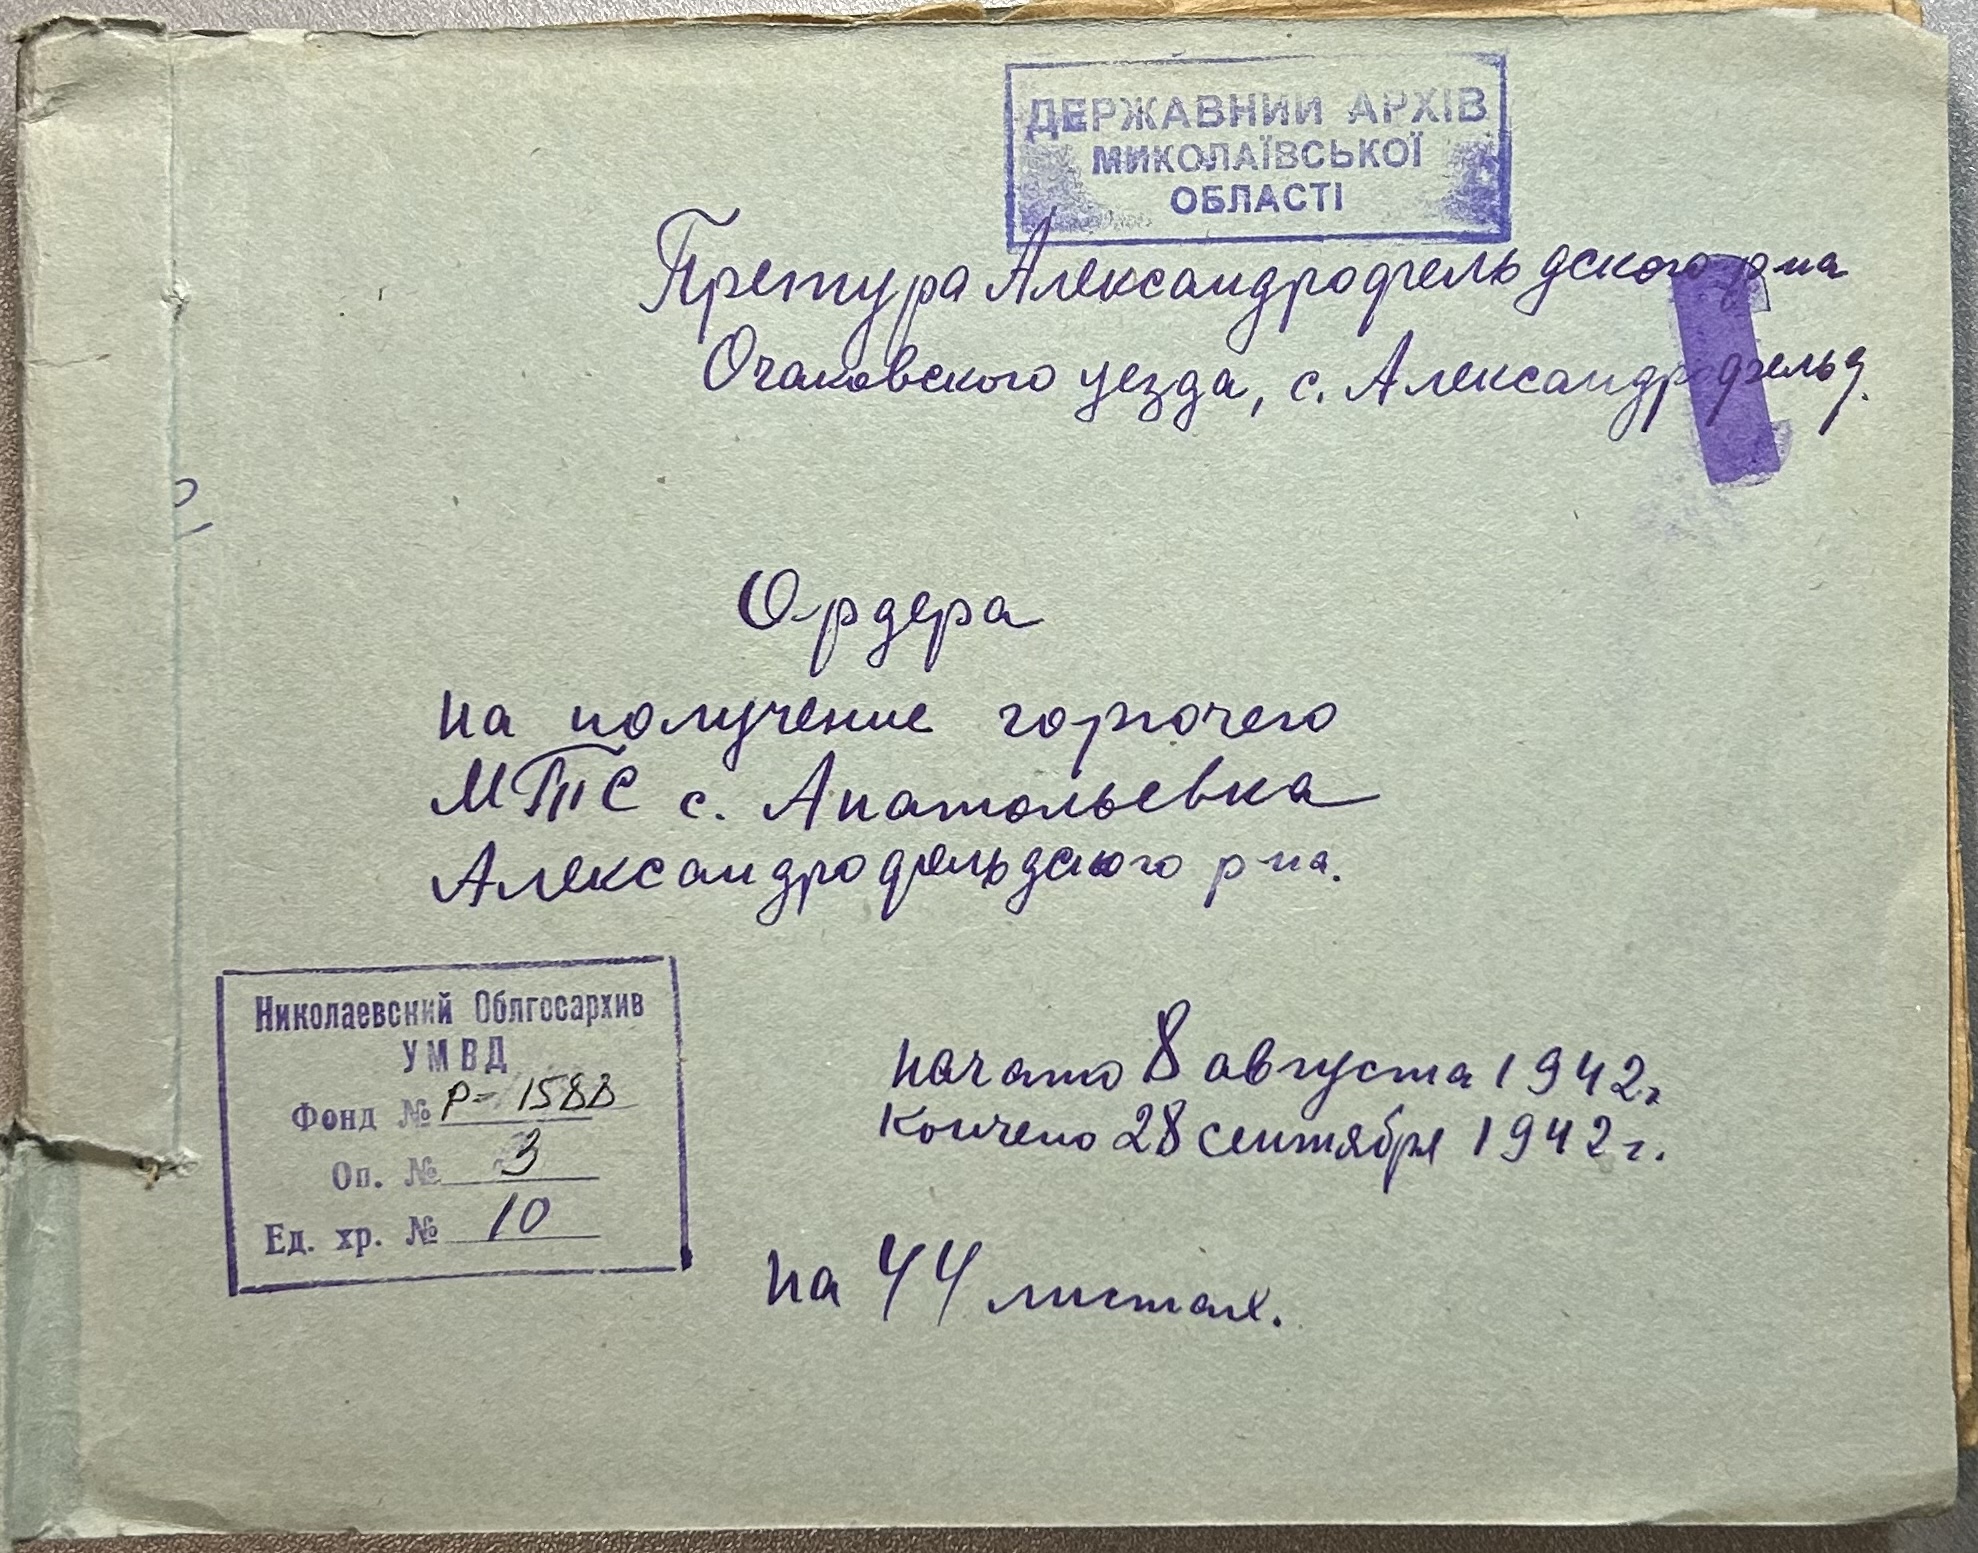 ДЕРЖАВНИЙ АРХІВ
МИКОЛАЇВСЬКОЇ
ОБЛАСТІ
Претура Александрофельдского р-на
Очаковского уезда, с. Александрфельд.
Ордера
на получение горючего
МТС с. Анатольевка
Александрофельдского р-на.
Николаевский Облгосархив
УМВД
Фонд № Р-1588
Оп. № 3
Ед. хр. № 10
начато 8 августа 1942г.
Кончено 28 сентября 1942 г.
на 44 листах.